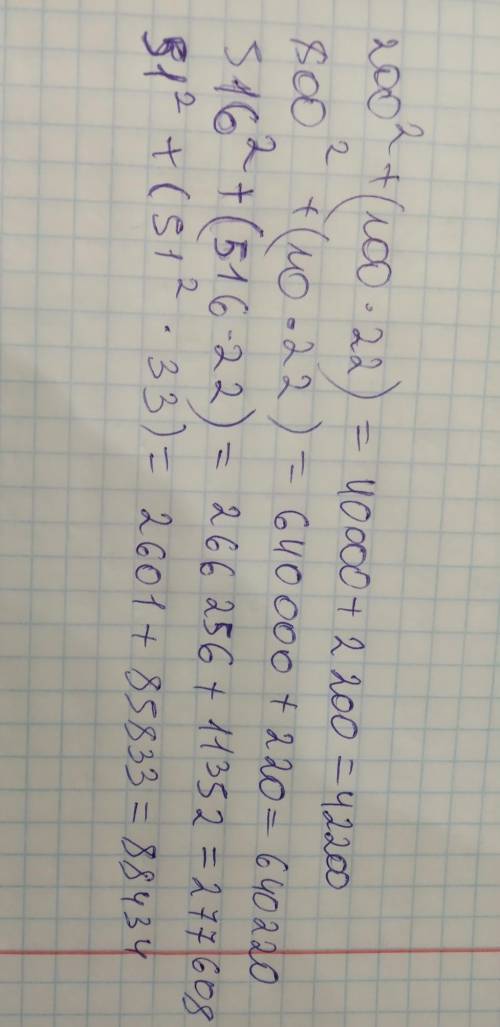 200² + (100 · 22) = 40000 + 2200 = 42200
800² + (10 · 22) = 640000 + 220 = 640220
516² + (516 · 22) = 266256 + 11352 = 277608
51² + (51² · 33) = 2601 + 85833 = 88434